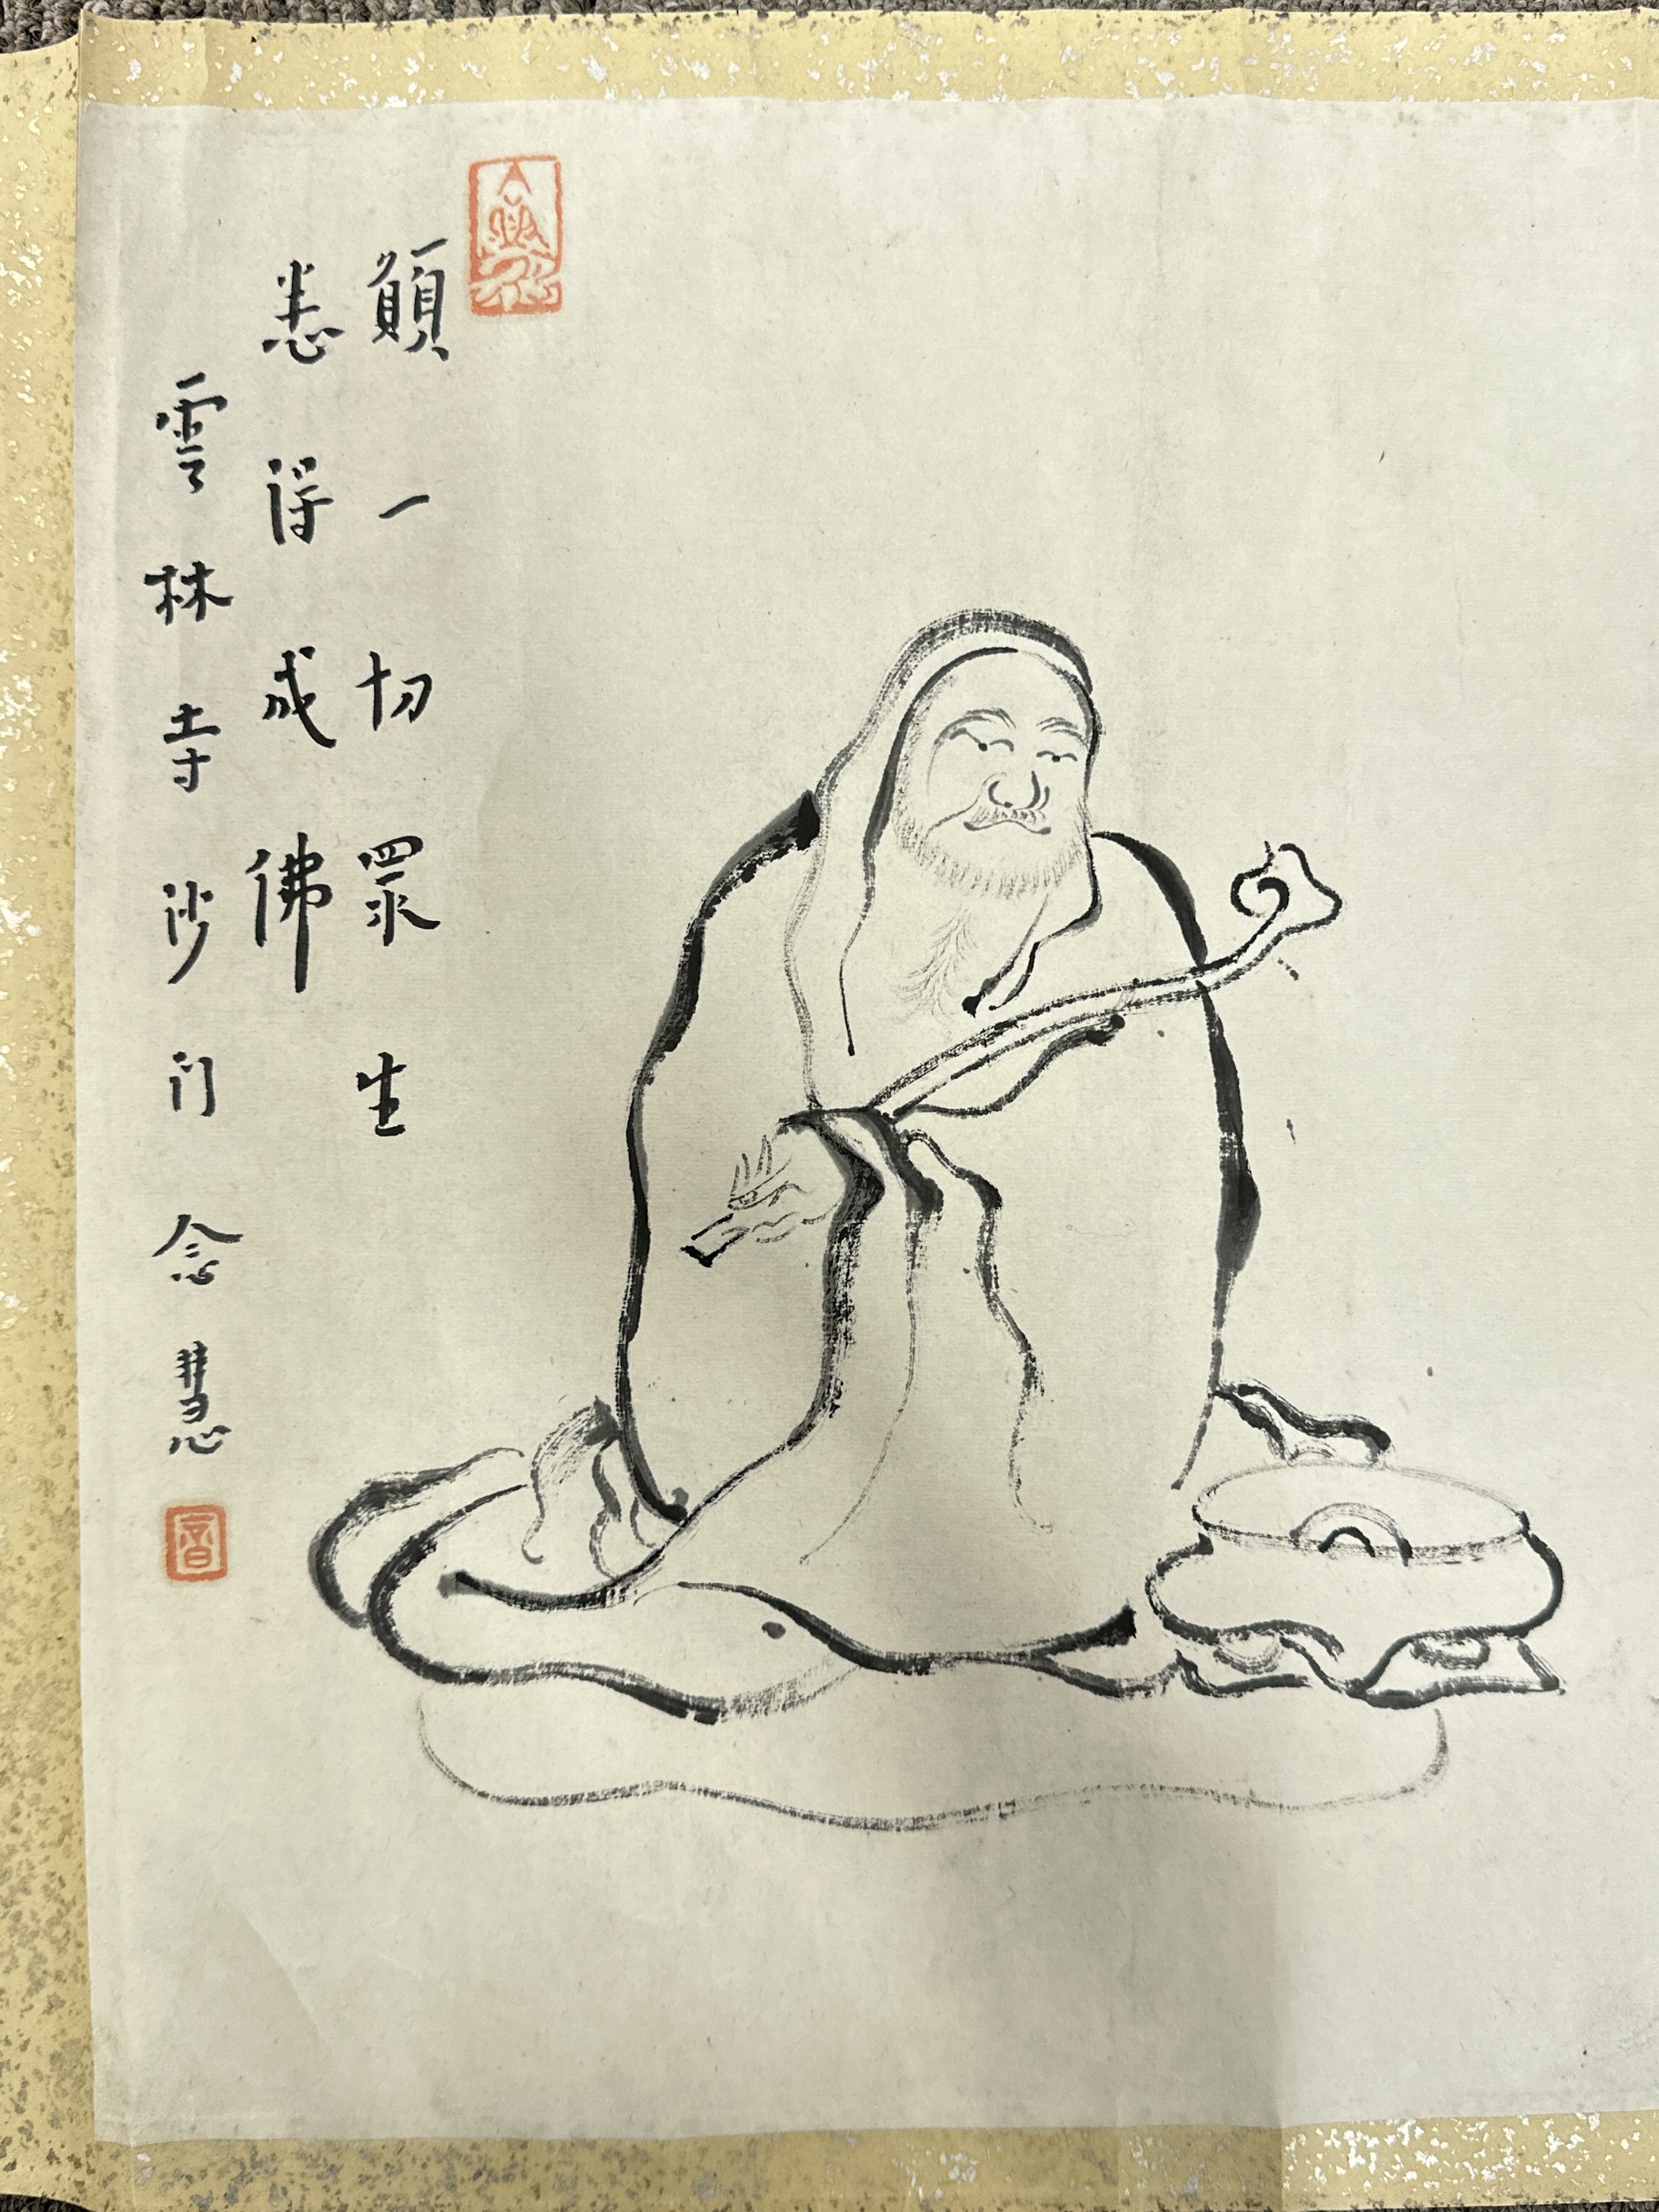 願一切眾生
悉得成佛
雲林寺沙门念慧